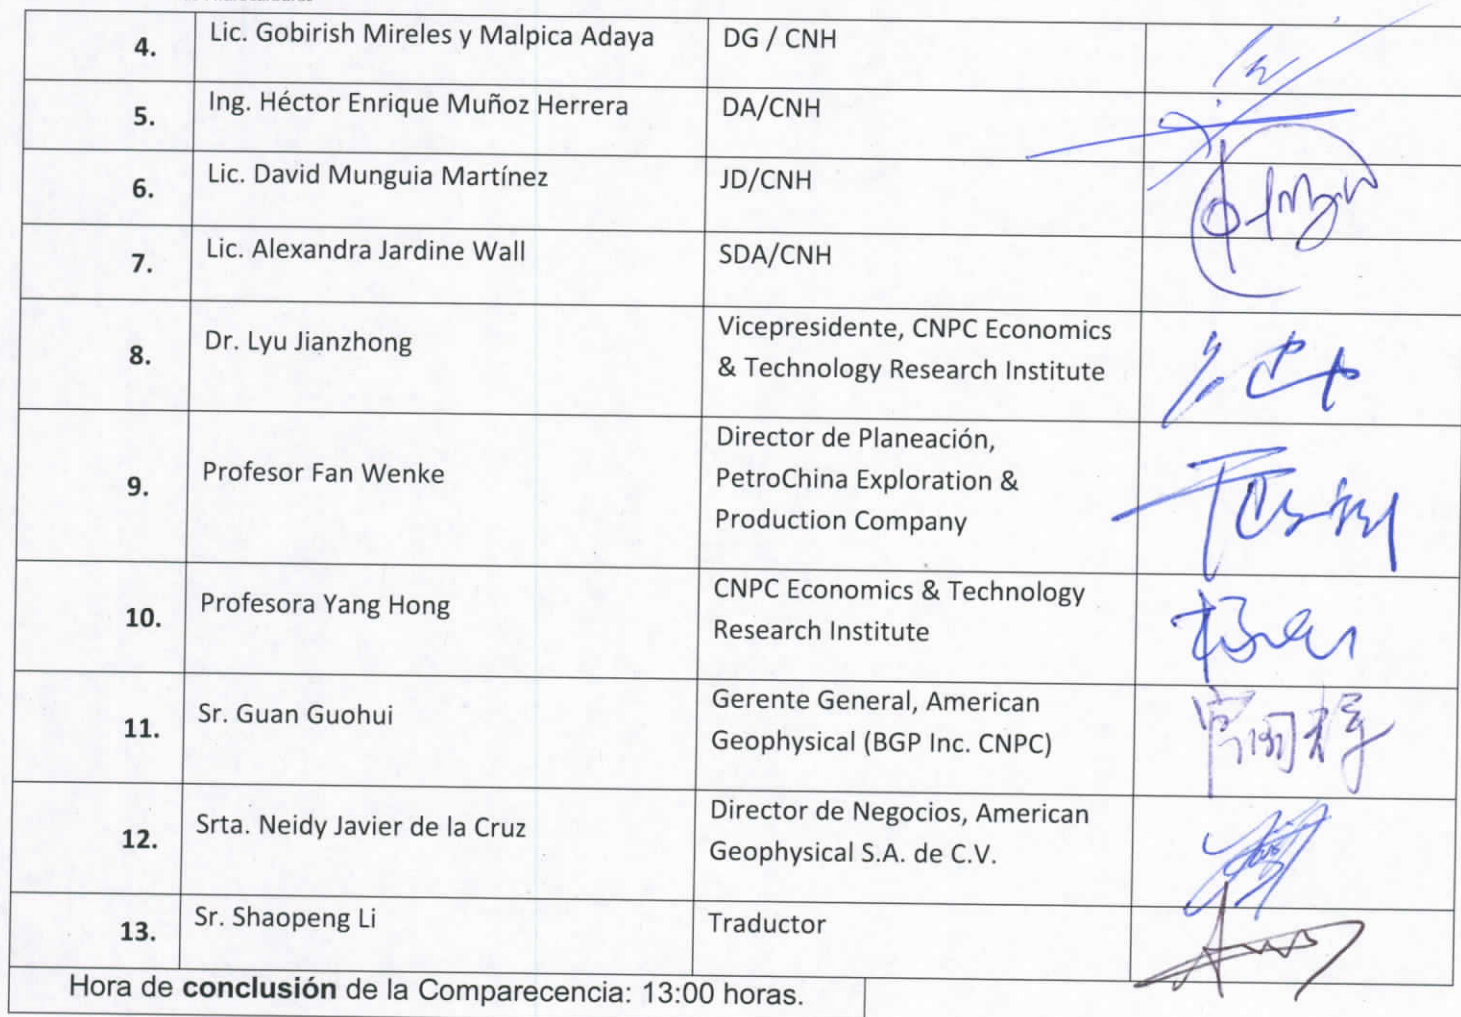 4. Lic. Gobirish Mireles y Malpica Adaya DG / CNH
5. Ing. Héctor Enrique Muñoz Herrera DA/CNH
6. Lic. David Munguia Martínez JD/CNH
7. Lic. Alexandra Jardine Wall SDA/CNH
8. Dr. Lyu Jianzhong Vicepresidente, CNPC Economics
& Technology Research Institute
9. Profesor Fan Wenke Director de Planeación,
PetroChina Exploration &
Production Company
10. Profesora Yang Hong CNPC Economics & Technology
Research Institute
11. Sr. Guan Guohui Gerente General, American
Geophysical (BGP Inc. CNPC)
12. Srta. Neidy Javier de la Cruz Director de Negocios, American
Geophysical S.A. de C.V.
13. Sr. Shaopeng Li Traductor
Hora de conclusión de la Comparecencia: 13:00 horas.